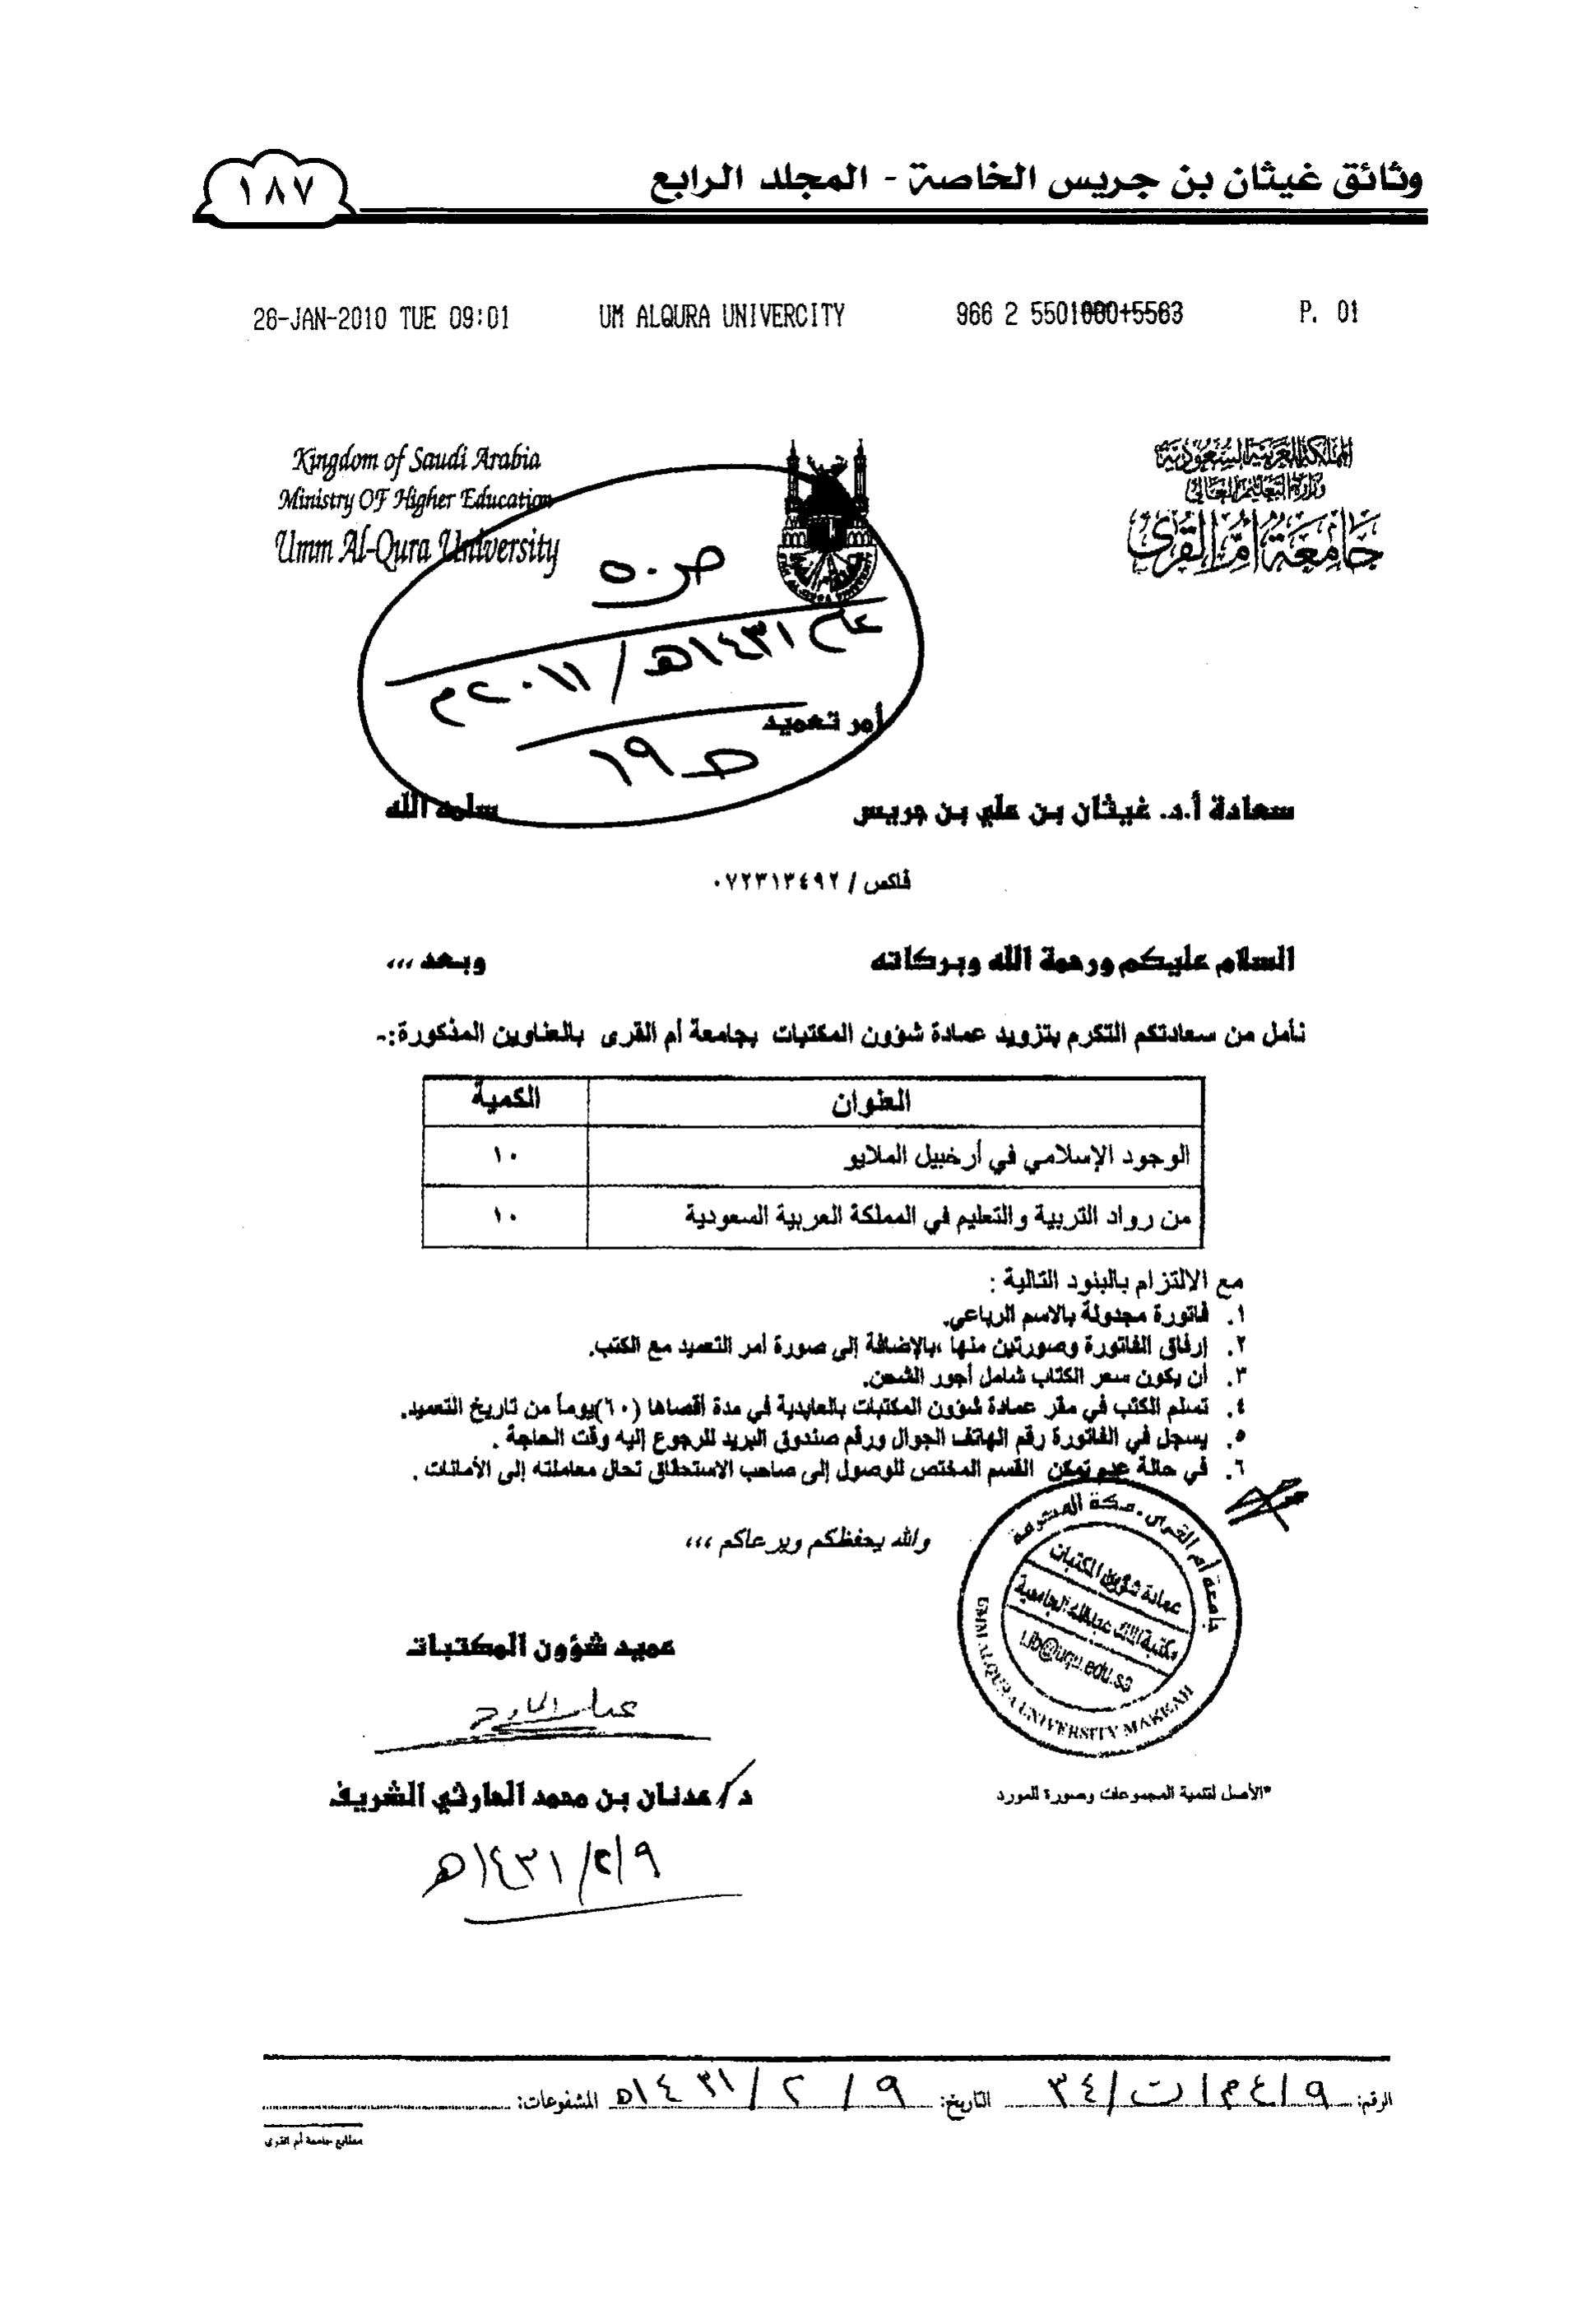 وثائق غيثان بن جريس الخاصة - المجلد الرابع
١٨٧
26-JAN-2010 TUE 09:01 UM ALQURA UNIVERCITY 966 2 5501000+5563 P. 01
المملكة العربية السعودية
وزارة التعليم العالي
جامعة أم القرى
Kingdom of Saudi Arabia
Ministry OF Higher Education
Umm Al-Qura University
ص٥٠
عام ١٤٣١هـ / ٢٠١١م
ص١٩
أمر تعميد
سعادة أ.د. غيثان بن علي بن جريس سلمه الله
فاكس / ٠٧٢٣١٣٤٩٢
السلام عليكم ورحمة الله وبركاته وبعد ،،،
نأمل من سعادتكم التكرم بتزويد عمادة شؤون المكتبات بجامعة أم القرى بالعناوين المذكورة:-
العنوان الكمية
الوجود الإسلامي في أرخبيل الملايو ١٠
من رواد التربية والتعليم في المملكة العربية السعودية ١٠
مع الالتزام بالبنود التالية :
١. فاتورة مجدولة بالاسم الرباعي.
٢. إرفاق الفاتورة وصورتين منها ،بالإضافة إلى صورة أمر التعميد مع الكتب.
٣. أن يكون سعر الكتاب شامل أجور الشحن.
٤. تسلم الكتب في مقر عمادة شؤون المكتبات بالعابدية في مدة أقصاها (٦٠)يوماً من تاريخ التعميد.
٥. يسجل في الفاتورة رقم الهاتف الجوال ورقم صندوق البريد للرجوع إليه وقت الحاجة .
٦. في حالة عدم تمكن القسم المختص للوصول إلى صاحب الاستحقاق تحال معاملته إلى الأمانات .
والله يحفظكم ويرعاكم ،،،
جامعة أم القرى - مكة المكرمة
عمادة شؤون المكتبات
مكتبة الملك عبدالله الجامعية
Lib@uqu.edu.sa
UMM ALQURA UNIVERSITY MAKKAH
عميد شؤون المكتبات
د/ عدنان بن محمد الحارثي الشريف
١٤٣١/٢/٩هـ
*الأصل لتنمية المجموعات وصورة للمورد
الرقم: ٩/٤م/ت/٣٤ التاريخ: ٩/٢/١٤٣١هـ المشفوعات:
مطابع جامعة أم القرى